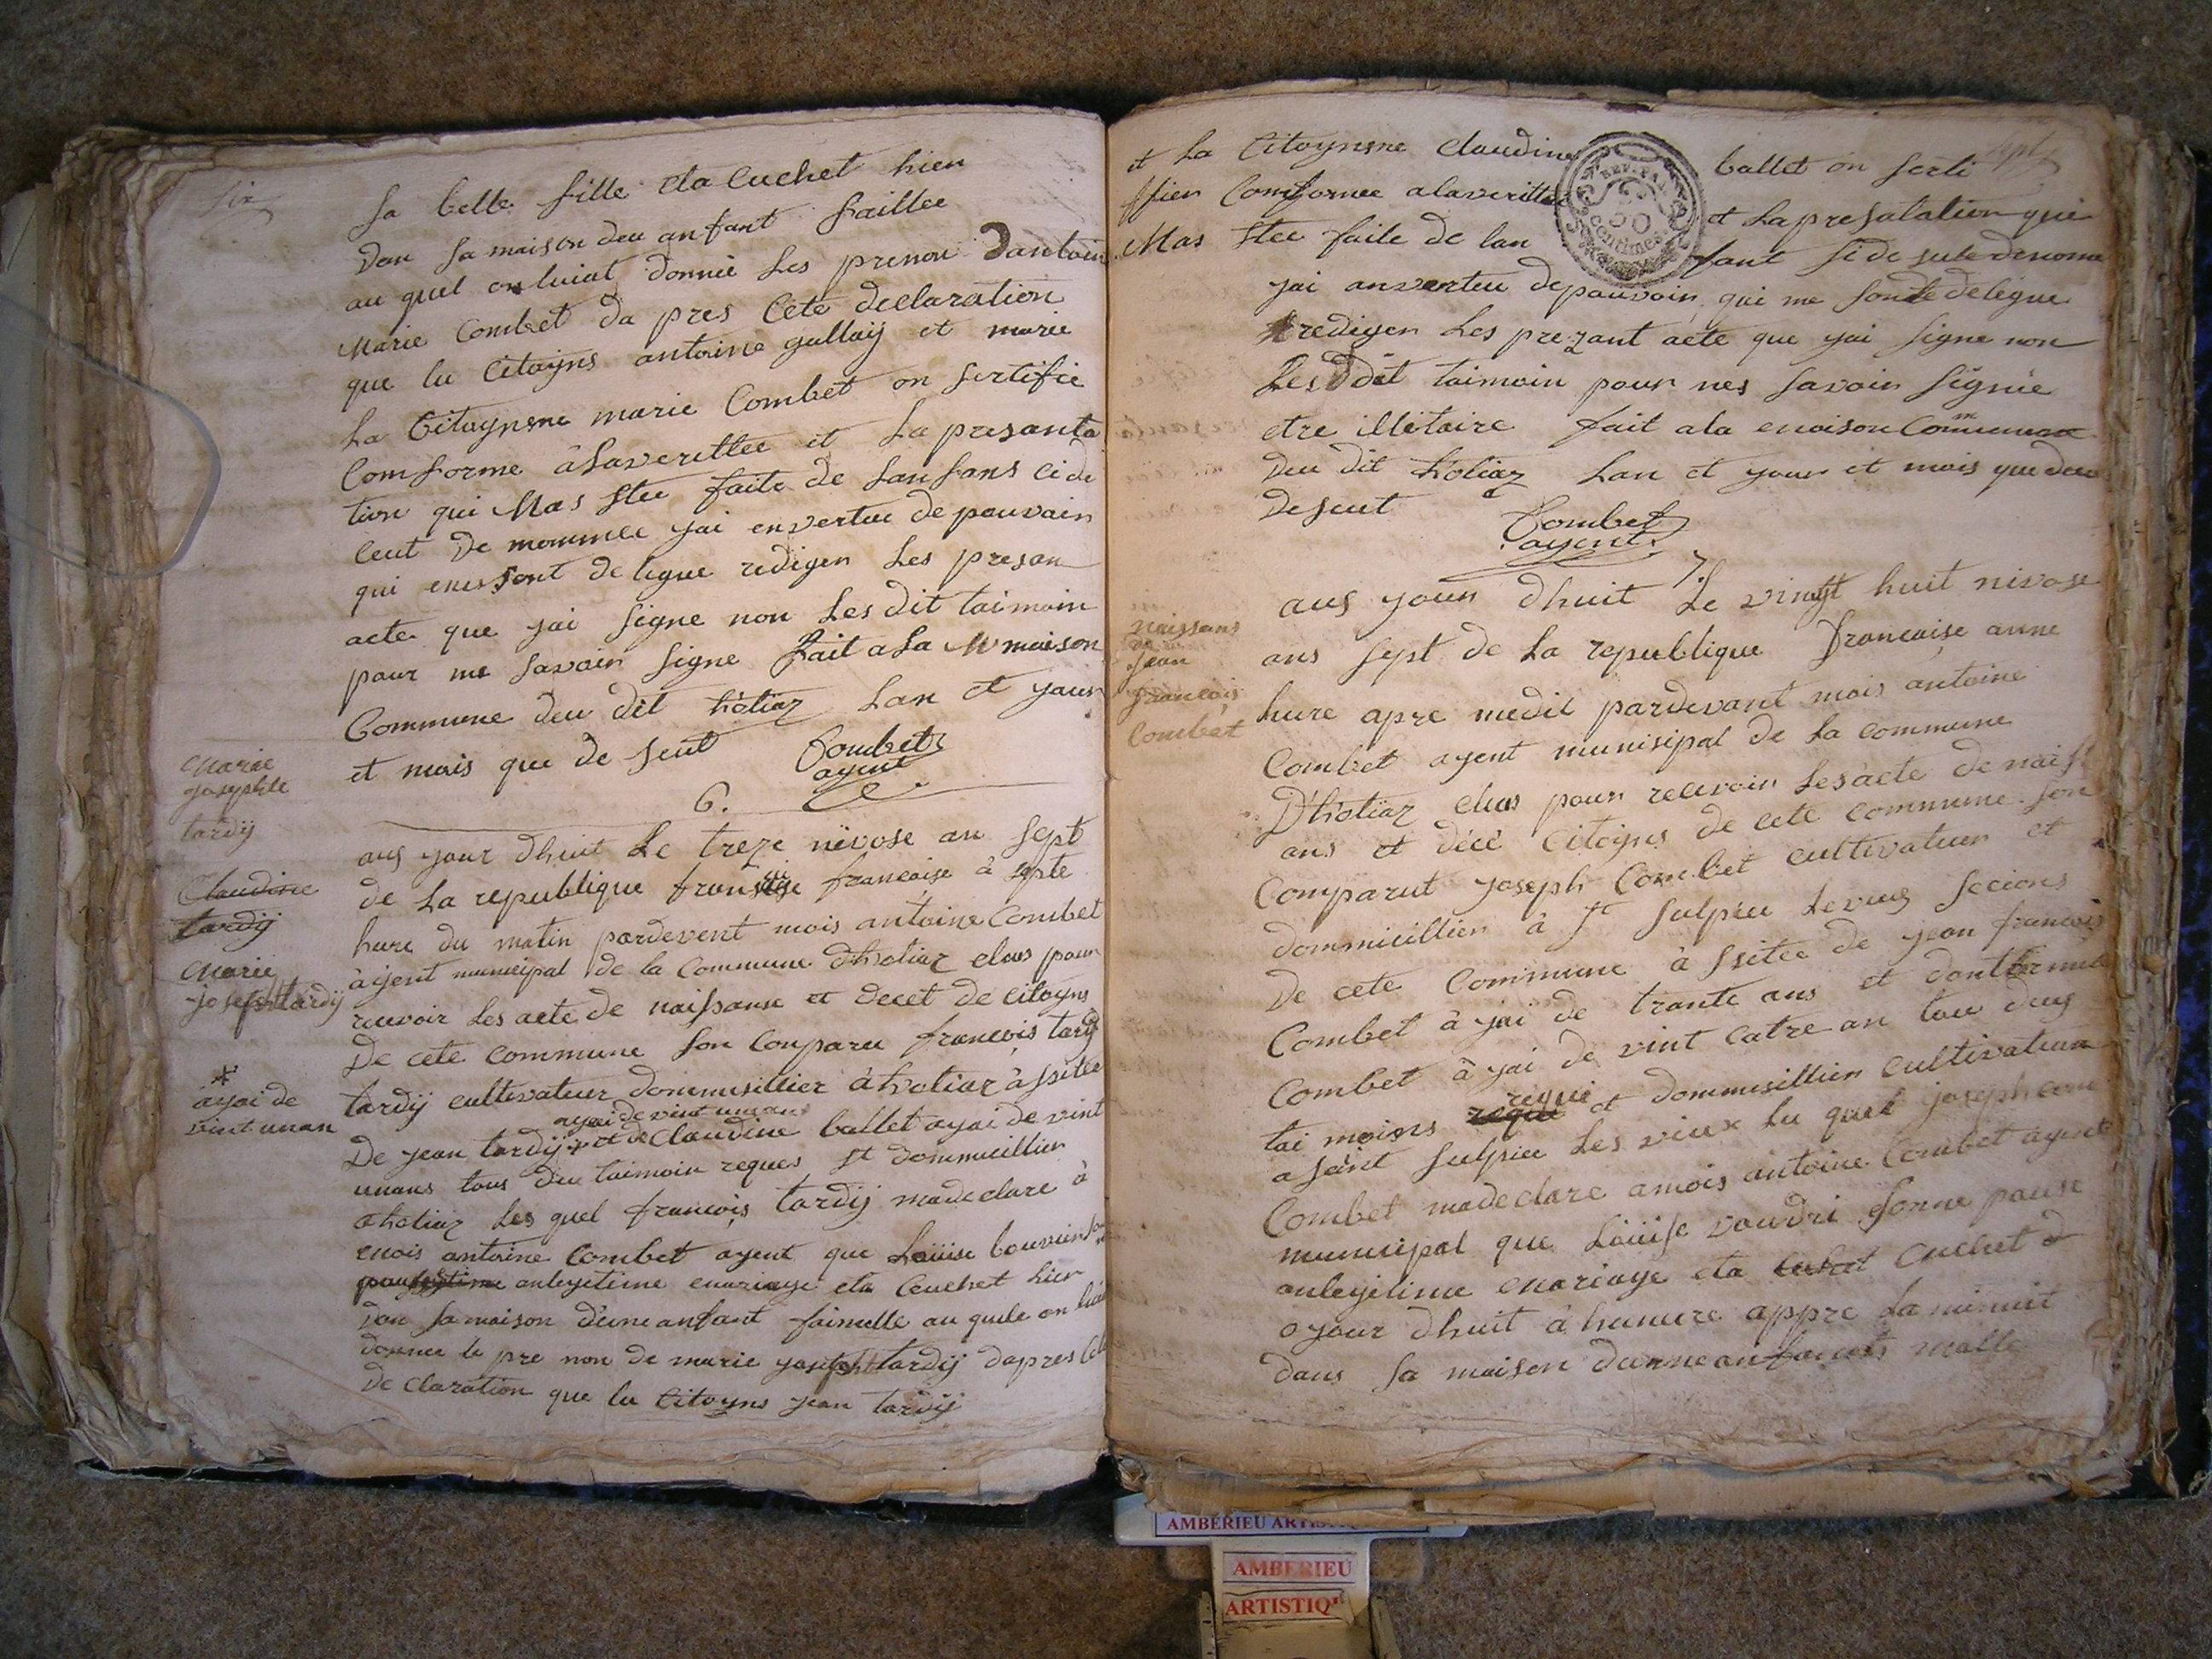 six
sa belle fille eta cuchet hier
dan sa maison deu anfant faillee
au quel on luiat donnie les prenon Dantoin
Marie Combet da pres Cete declaration
que lu Citoyns antoine gallaij et marie
La Citoynsne marie Combet on sertifie
Comforme à laverittee et la presanta
tion qui Mas stee faite de lanfans cide
ceut de mommee jai envertue de pouvoir
qui mes sont deligue rediger les presan
acte que jai signe non les dit taimoin
pour ne savoir signe fait a la maison
Commune deu dit hôtiaz lan et your
et mois que de seut Combet
agent
6.
Marie
josephte
tardij
Claudine
tardij
Marie
josephtardij
*
ajai de
vint unan
auj your dhuit le treze nivose an sept
de la republique francaise à septe
hure du matin pardevent mois antoine Combet
àjent municipal de la Commune dhotiaz elus pour
recevoir les acte de naissanse et decet de citoyns
De cete commune son conparu francois tardij
tardij cultivateur dommisillier à hotiaz à ssitee
ajai de vint unans
De jean tardij * et de Claudine ballet ajai de vint
unans tous deu taimoin reques et dommicillier
a hotiaz les quel francois tardij madeclare à
mois antoine Combet agent que Louise bouvier
anlegitime mariage eta Ceuchet hier
dan sa maison deune anfant faimelle au quele on
donnee le pre non de marie joseph tardij dapres
De claration que lu Citoyns jean tardij
sept
et la Citoynsne Claudine ballet on serti
ffier Comfornee alaverittee et la presatation qui
Mas stee faite de lan fant side sute denome
REP. FRA.
50
centimes
jai anvertue de pouvoir qui me sonte deligue
redigen les prezant acte que jai signe non
Les dit taimoin pour nes savoir signie
etre illitaire fait ala maison Commune
deu dit hôtiaz lan et your et mois que deu
deseut Combet
agent.
7.
naissans
de
jean
francois
Combet
auj your dhuit le vingt huit nivose
ans sept de la republique francaise anne
hure apre medit pardevant mois antoine
Combet agent munisipal de la commune
D'hôtiaz elus pour recevoir les acte de naiss
ans et décé citoyns de cete commune son
Comparut joseph Combet cultivateur et
dommicillier à st sulpice levieuz secions
De cete Commune à ssitee de jean francois
Combet à jai de trante ans et
Combet à jai de vint catre an tou deus
reque
tai moins reque et dommisillier cultivateur
a saint sulpice les vieux lu quel joseph com
Combet madeclare amois antoine Combet agent
municipal que Louise vaudri sonne pause
anlegitime mariage eta cuchet
ojour dhuit à huneure appre la minuit
dans sa maison dunne anfants malle
AMBÉRIEU ARTISTIQUE
AMBERIEU
ARTISTIQ